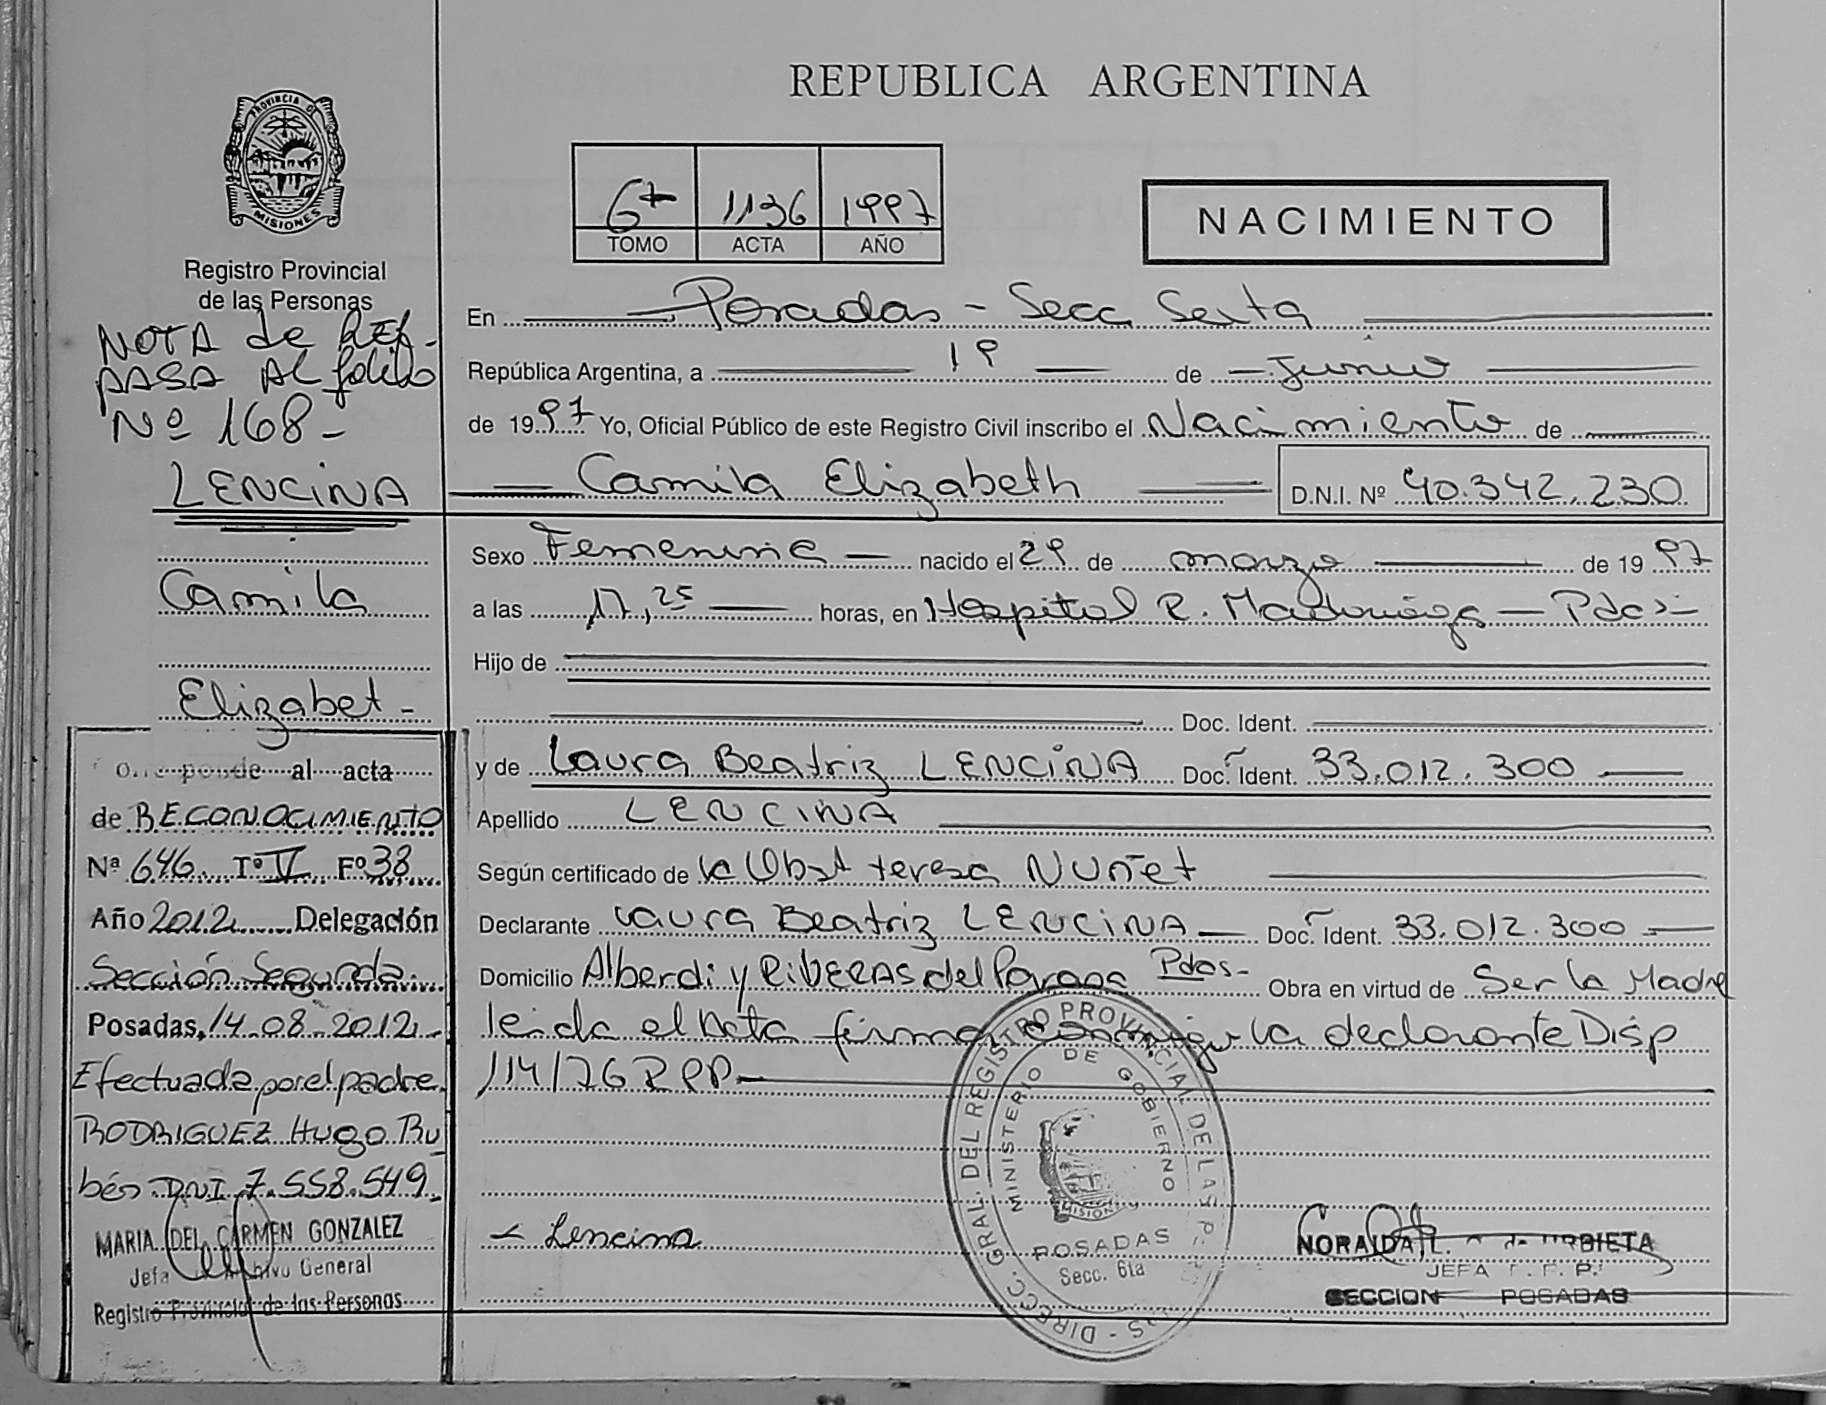 REPUBLICA ARGENTINA
PROVINCIA DE
MISIONES
Registro Provincial
de las Personas
NOTA de REF-
PASA AL folio
Nº 168-
LENCINA
Camila
Elizabet-
6t 1136 1997
TOMO ACTA AÑO
NACIMIENTO
En Posadas - Secc Sexta
República Argentina, a 19 de Junio
de 1997 Yo, Oficial Público de este Registro Civil inscribo el Nacimiento de
Camila Elizabeth D.N.I. Nº 40.342.230
Sexo Femenina nacido el 29 de marzo de 1997
a las 17,25 horas, en Hospital R. Madariaga - Pdas-
Hijo de
Doc. Ident.
y de Laura Beatriz LENCINA Doc. Ident. 33.012.300
Apellido LENCINA
Según certificado de la Obst teresa Nuñez
Declarante Laura Beatriz LENCINA Doc. Ident. 33.012.300
Domicilio Alberdi y RIBERAS del Parana Pdas- Obra en virtud de Ser la Madre
leida el Acta firma conmigo la declarante Disp
114/76 RPP
L Lencina
Corresponde al acta
de RECONOCIMIENTO
Nª 646 Tº V Fº 38
Año 2012 Delegación
Sección Segunda
Posadas, 14-08-2012
Efectuada por el padre
RODRIGUEZ Hugo Ru
bén DNI 7.558.549.
MARIA DEL CARMEN GONZALEZ
Jefa Archivo General
Registro Provincial de las Personas
DIRECC. GRAL. DEL REGISTRO PROVINCIAL DE LAS P
MINISTERIO DE GOBIERNO
MISIONES
POSADAS
Secc. 6ta
NORA IDA L. URBIETA
JEFA
SECCION POSADAS